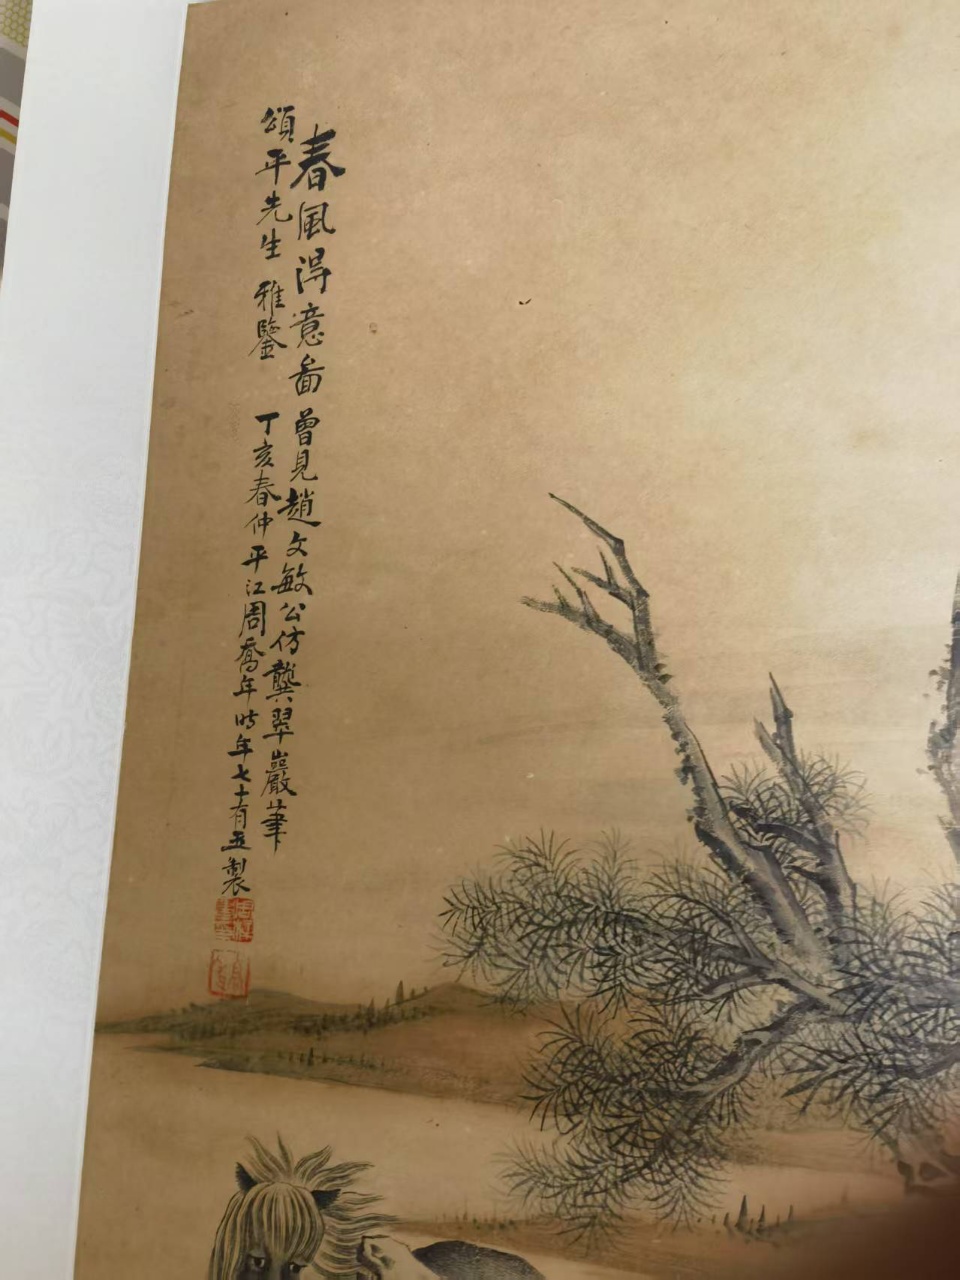 春風得意圖曾見趙文敏公仿龔翠巖筆
頌平先生 雅鑒 丁亥春仲平江周喬年時年七十有五製